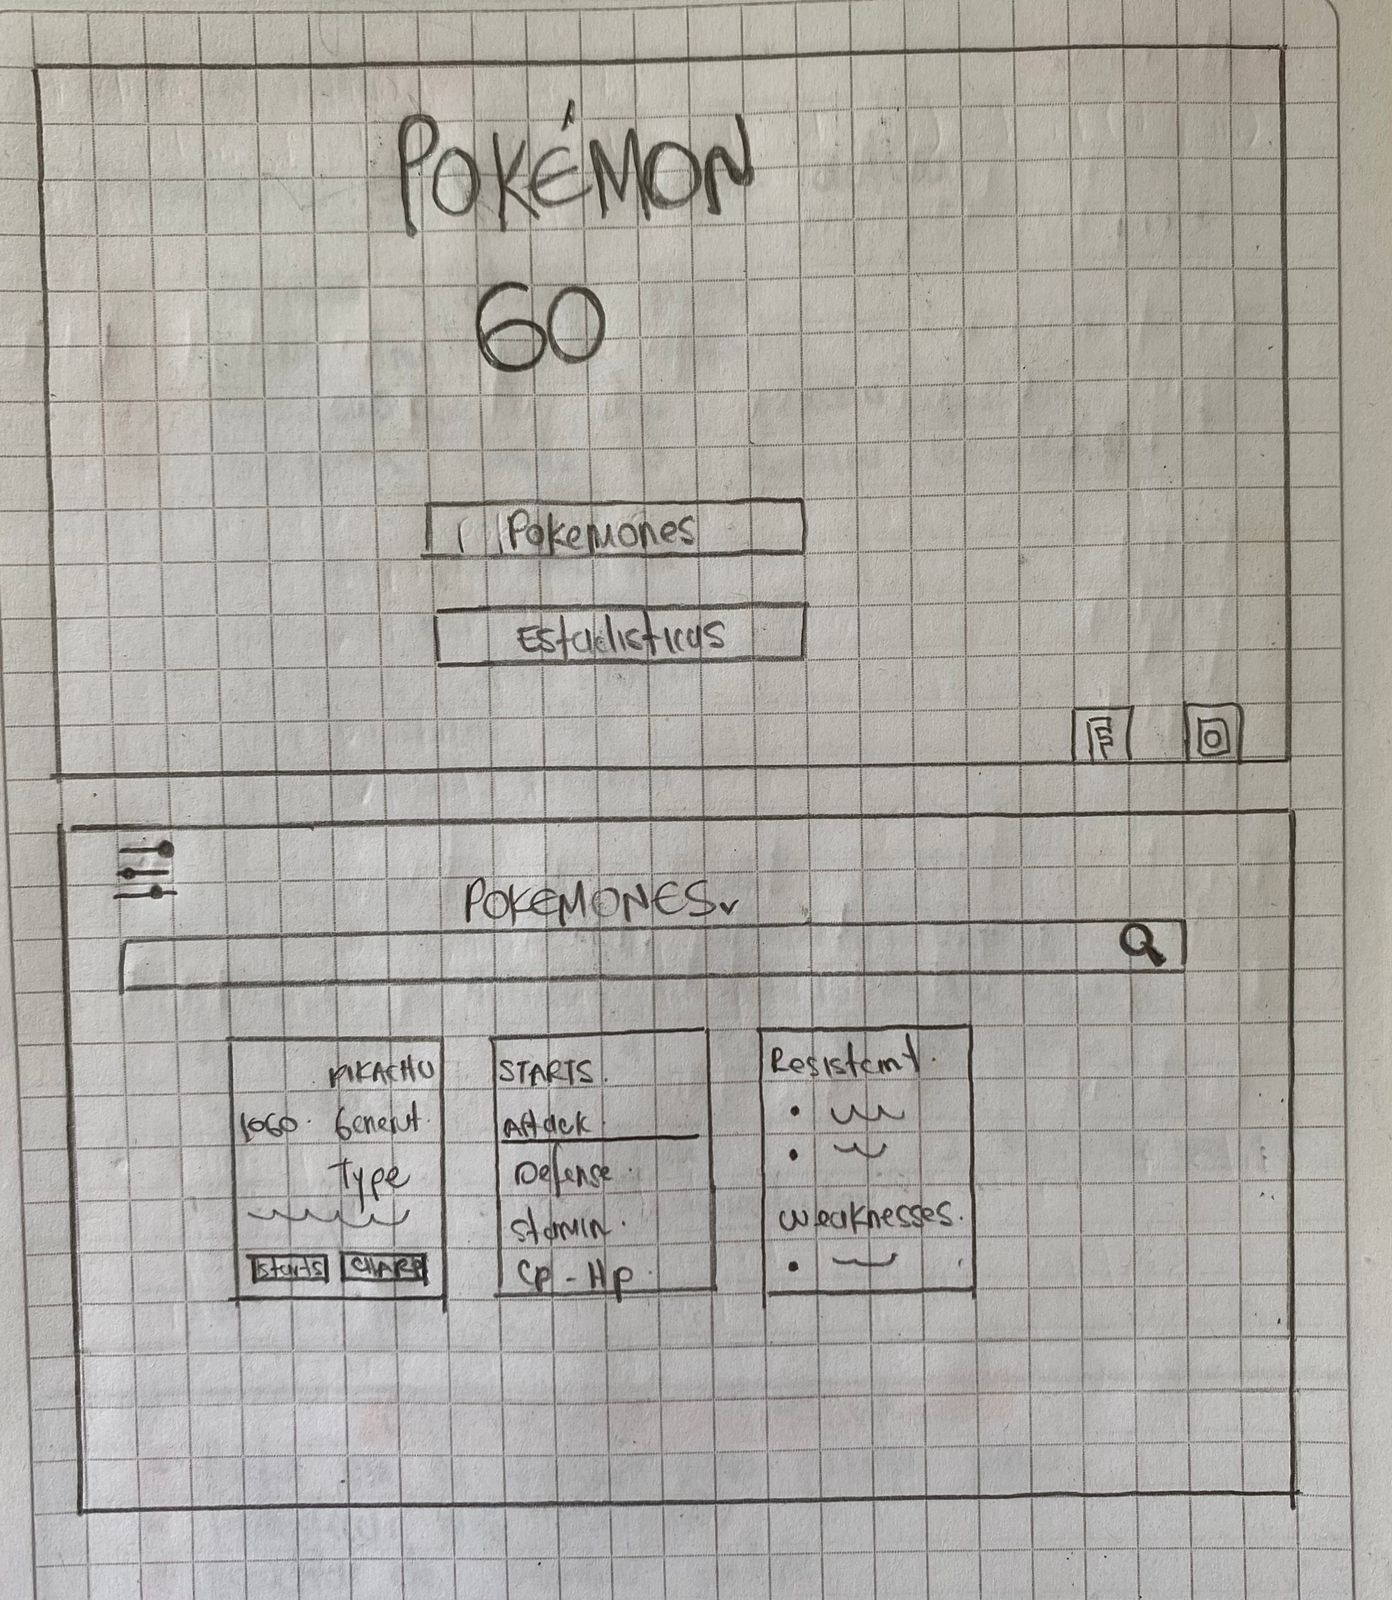 POKÉMON
GO
Pokemones
Estadisticas
F
POKEMONES
PIKACHU
LOGO. Generat.
Type
Starts CHARP
STARTS.
Attack
Defense.
Stamin.
Cp - Hp.
Resistant.
Weaknesses.